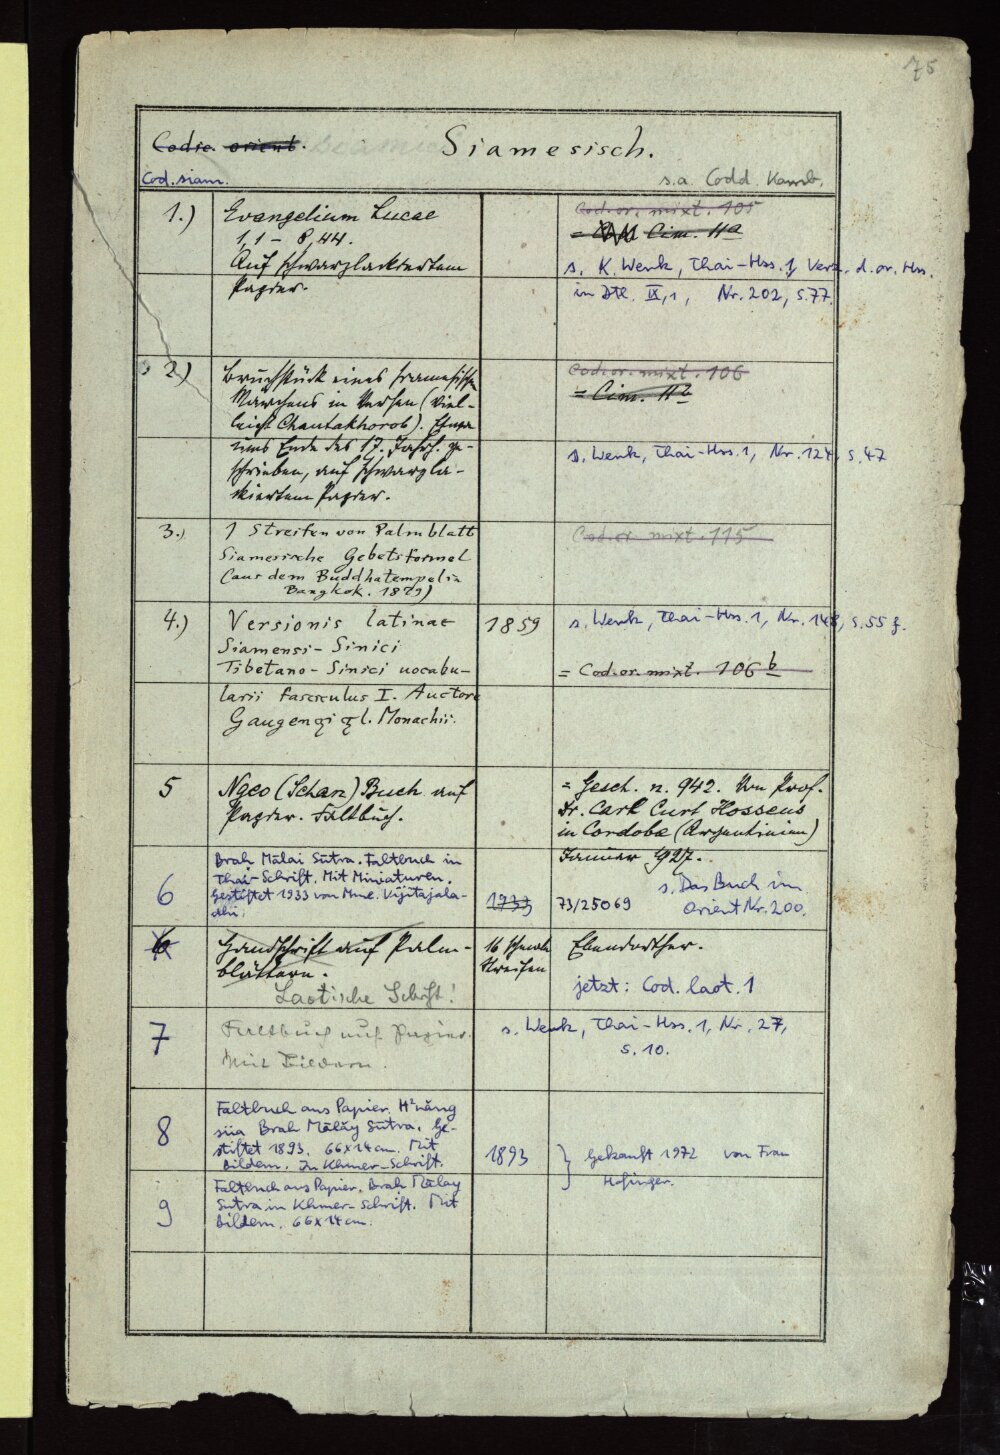 75
Codic. orient.
Siamesisch.
Cod. siam.
s.a. Codd. Kamb.
1.) Evangelium Lucae
1,1 – 8,44.
Auf schwarzlackiertem
Papier.
Cod. or. mixt. 105
= Cim. 11a
s. K. Wenk, Thai-Hss. 1, Verz. d. or. Hss.
in Dtl. IX,1, Nr. 202, S.77.
2.) Bruchstück eines siamesisch
Märchens in Versen (viel-
leicht Chantakhorob). Etwa
ums Ende des 17. Jahrh. ge-
schrieben, auf schwarzla-
kiertem Papier.
Cod. or. mixt. 106
= Cim. 11b
s. Wenk, Thai-Hss. 1, Nr. 124, S. 47
3.) 1 Streifen von Palmblatt
Siamesische Gebetsformel
(aus dem Buddhatempel in
Bangkok. 1879)
Cod. or. mixt. 115
4.) Versionis latinae
Siamensi-Sinici
Tibetano-Sinici vocabu-
larii fasciculus I. Auctore
Monachii.
1859
s. Wenk, Thai-Hss. 1, Nr. 148, S. 55 f.
= Cod. or. mixt. 106 b
5 Ngeo (Schan) Buch auf
Papier. Faltbuch.
= Gesch. n. 942. Von Prof.
Dr. Carl Curt Hosseus
in Cordoba (Argentinien)
Januar 1927.
6 Brah Mālai Sūtra. Faltbuch in
Thai-Schrift. Mit Miniaturen.
Gestiftet 1933 von Mme. Vijitajala-
dhi.
1933
73/25069
s. Das Buch im
Orient Nr. 200.
6 Handschrift auf Palm-
blättern.
Laotische Schrift!
16 schmale
Streifen
Ebendorther.
jetzt: Cod. laot. 1
7 Faltbuch auf Papier.
Mit Bildern.
s. Wenk, Thai-Hss. 1, Nr. 27,
S. 10.
8 Faltbuch aus Papier. H²năng
süa Brah Mālăy Sūtra. Ge-
stiftet 1893. 66x14 cm. Mit
Bildern. In Khmer-Schrift.
1893
} Gekauft 1972 von Frau
Hofinger.
9 Faltbuch aus Papier. Brah Mālay
Sūtra in Khmer-Schrift. Mit
Bildern. 66x14 cm.